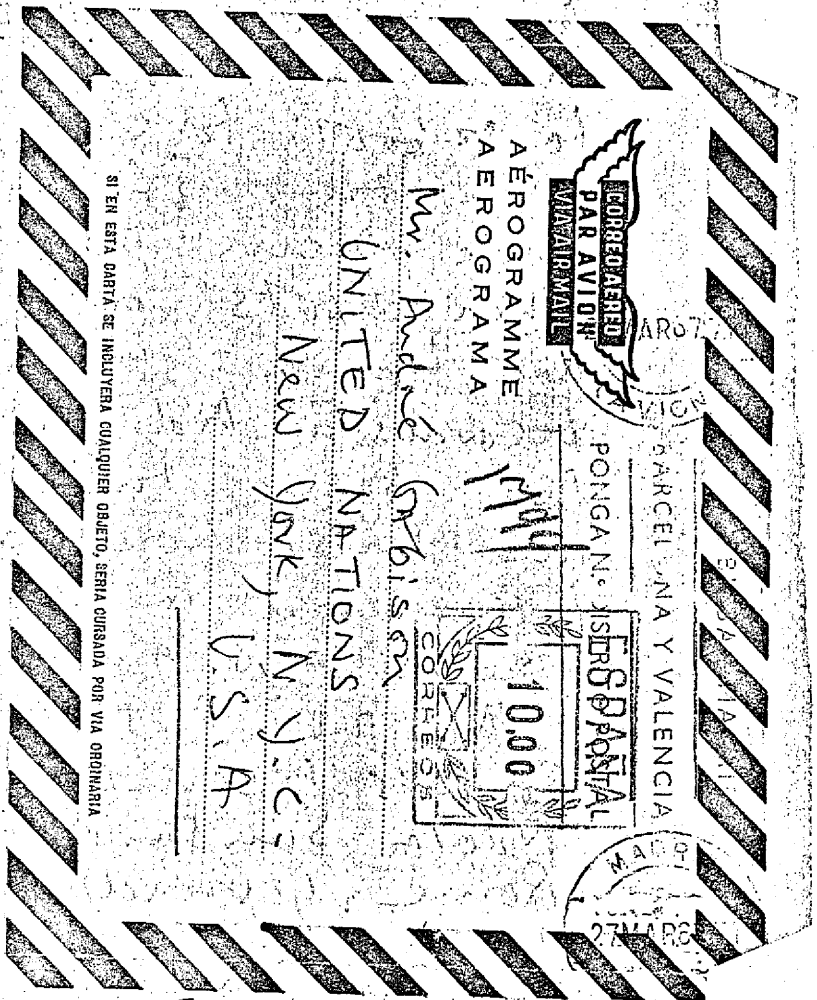 CORREO AEREO
PAR AVION
VIA AIR MAIL
AÉROGRAMME
AEROGRAMA
Y VALENCIA
PONGA N.º DISTRITO POSTAL
ESPAÑA
10,00
CORREOS
27 MAR
Mr. André Gabison
UNITED NATIONS
New York, N.Y.C.
U.S.A
SI EN ESTA CARTA SE INCLUYERA CUALQUIER OBJETO, SERIA CURSADA POR VIA ORDINARIA